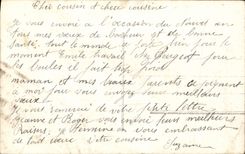 Cher cousin et chère cousine
Je vous envoie à l'occasion du nouvel an
tous mes vœux de bonheur et de bonne
santé. Tout le monde se porte bien pour le
moment Emile travail au Peugeot pour
les il fait très froid
maman et mes Parents se joignent
à moi pour vous envoyer leurs meilleurs
vœux.
Je vous remercie de votre petite lettre
Jeanne et Roger vous envoie leurs meilleurs
Baisers. Je termine en vous embrassant
de tout cœur votre cousine
Suzanne